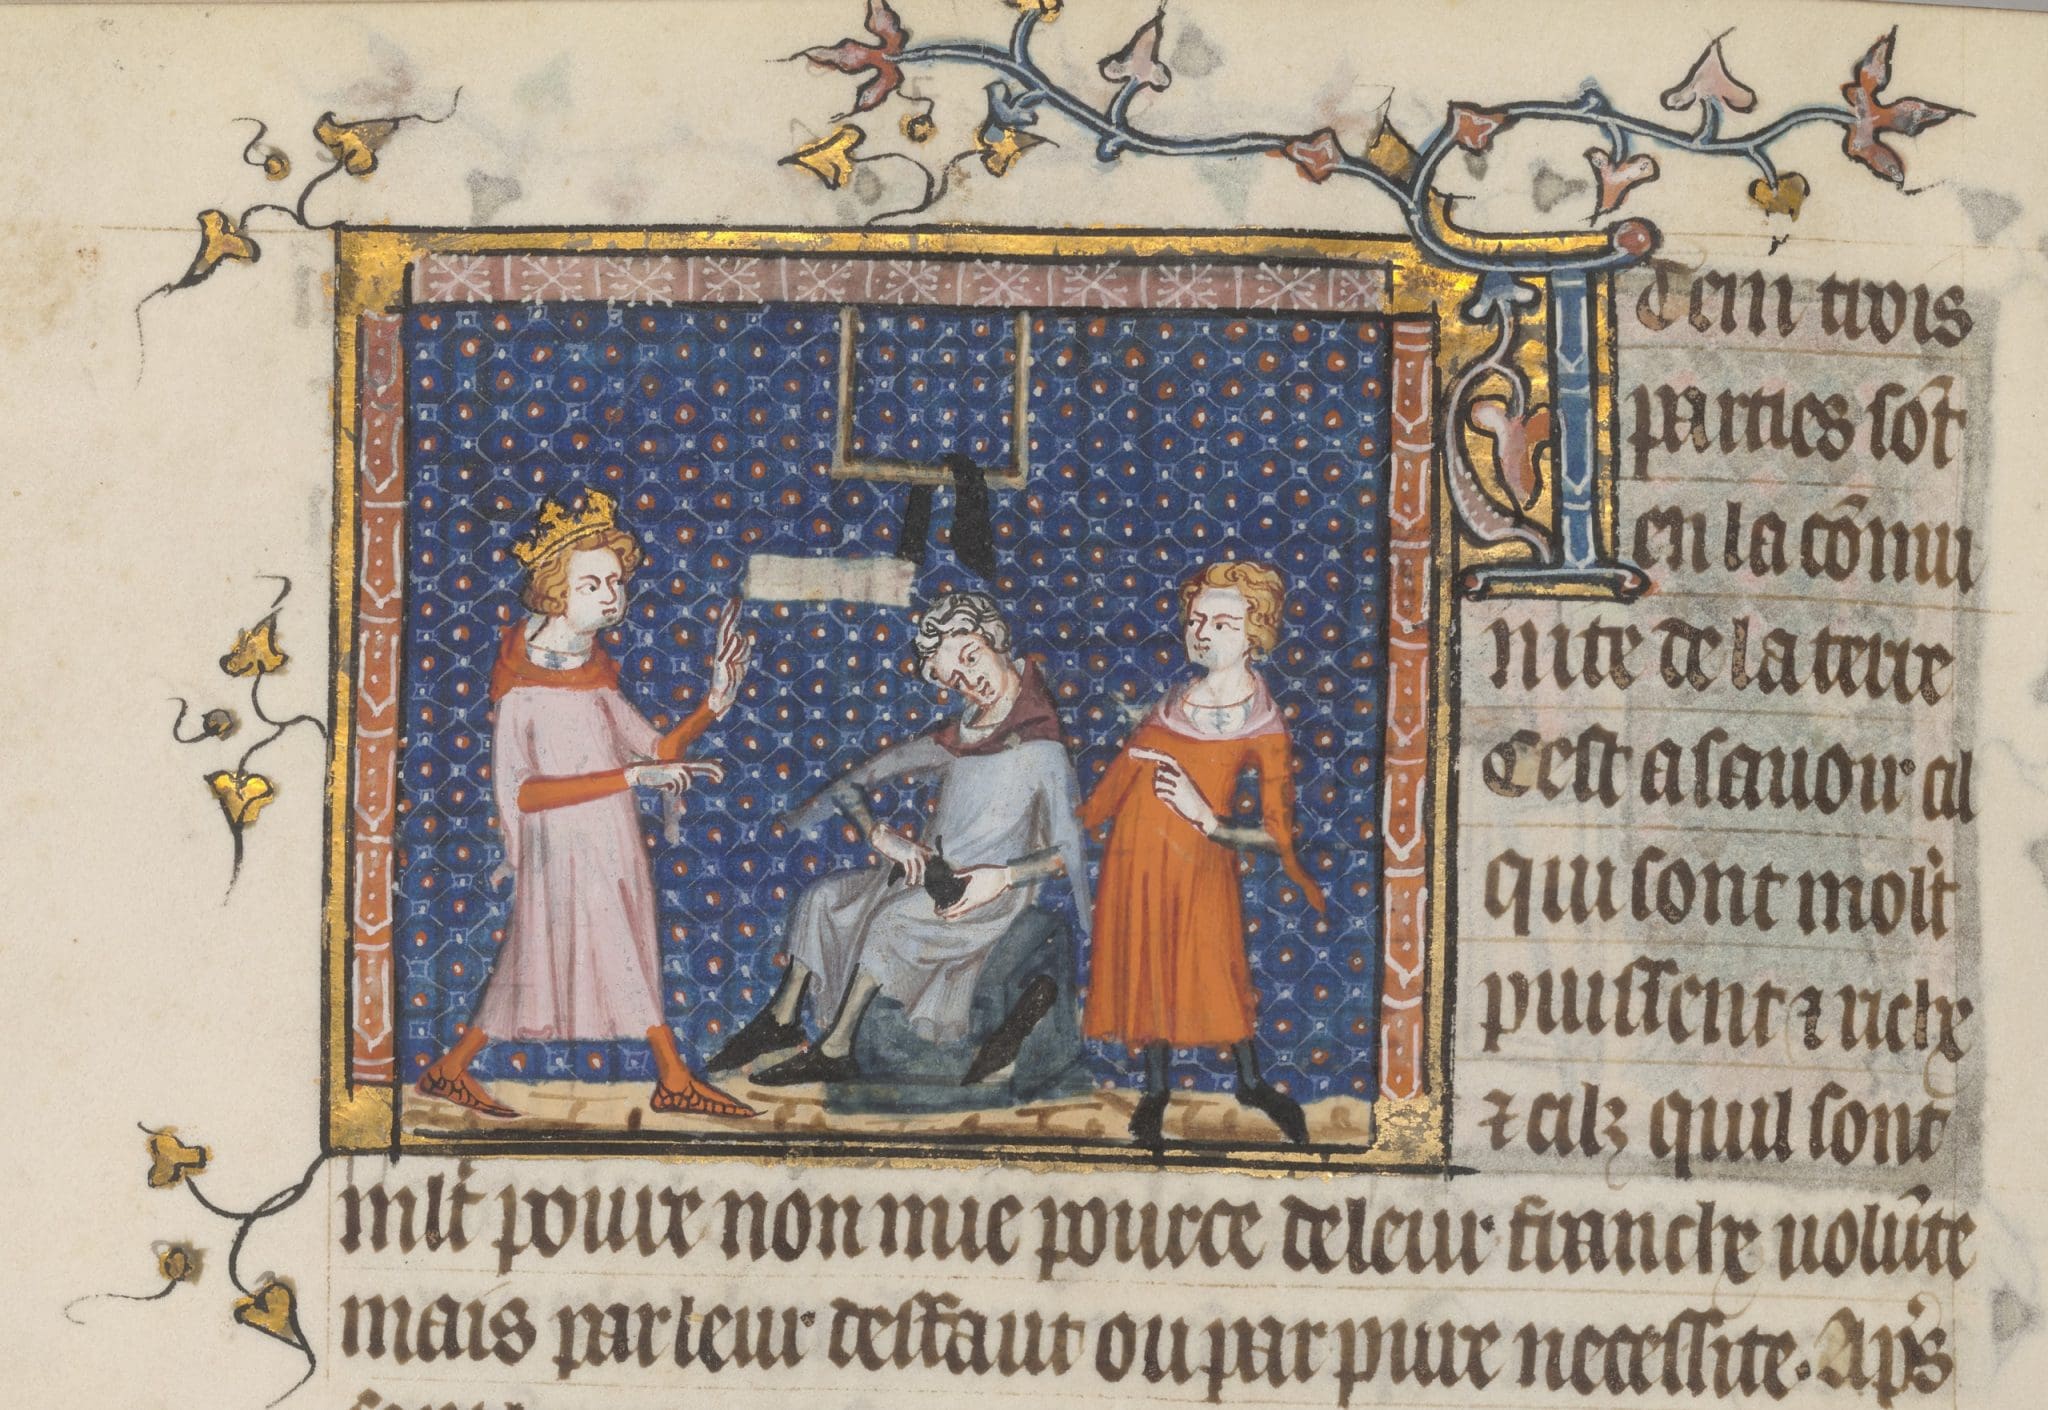 Item trois
parties sōt
en la cōmu
nite de la terre
Cest a sauoir cil
qui sont molt
puissent ⁊ riche
⁊ cilz quil sont
mlt poure non mie pource de leur franche volūte
mais par leur deffaut ou par pure necessite. Apꝰs